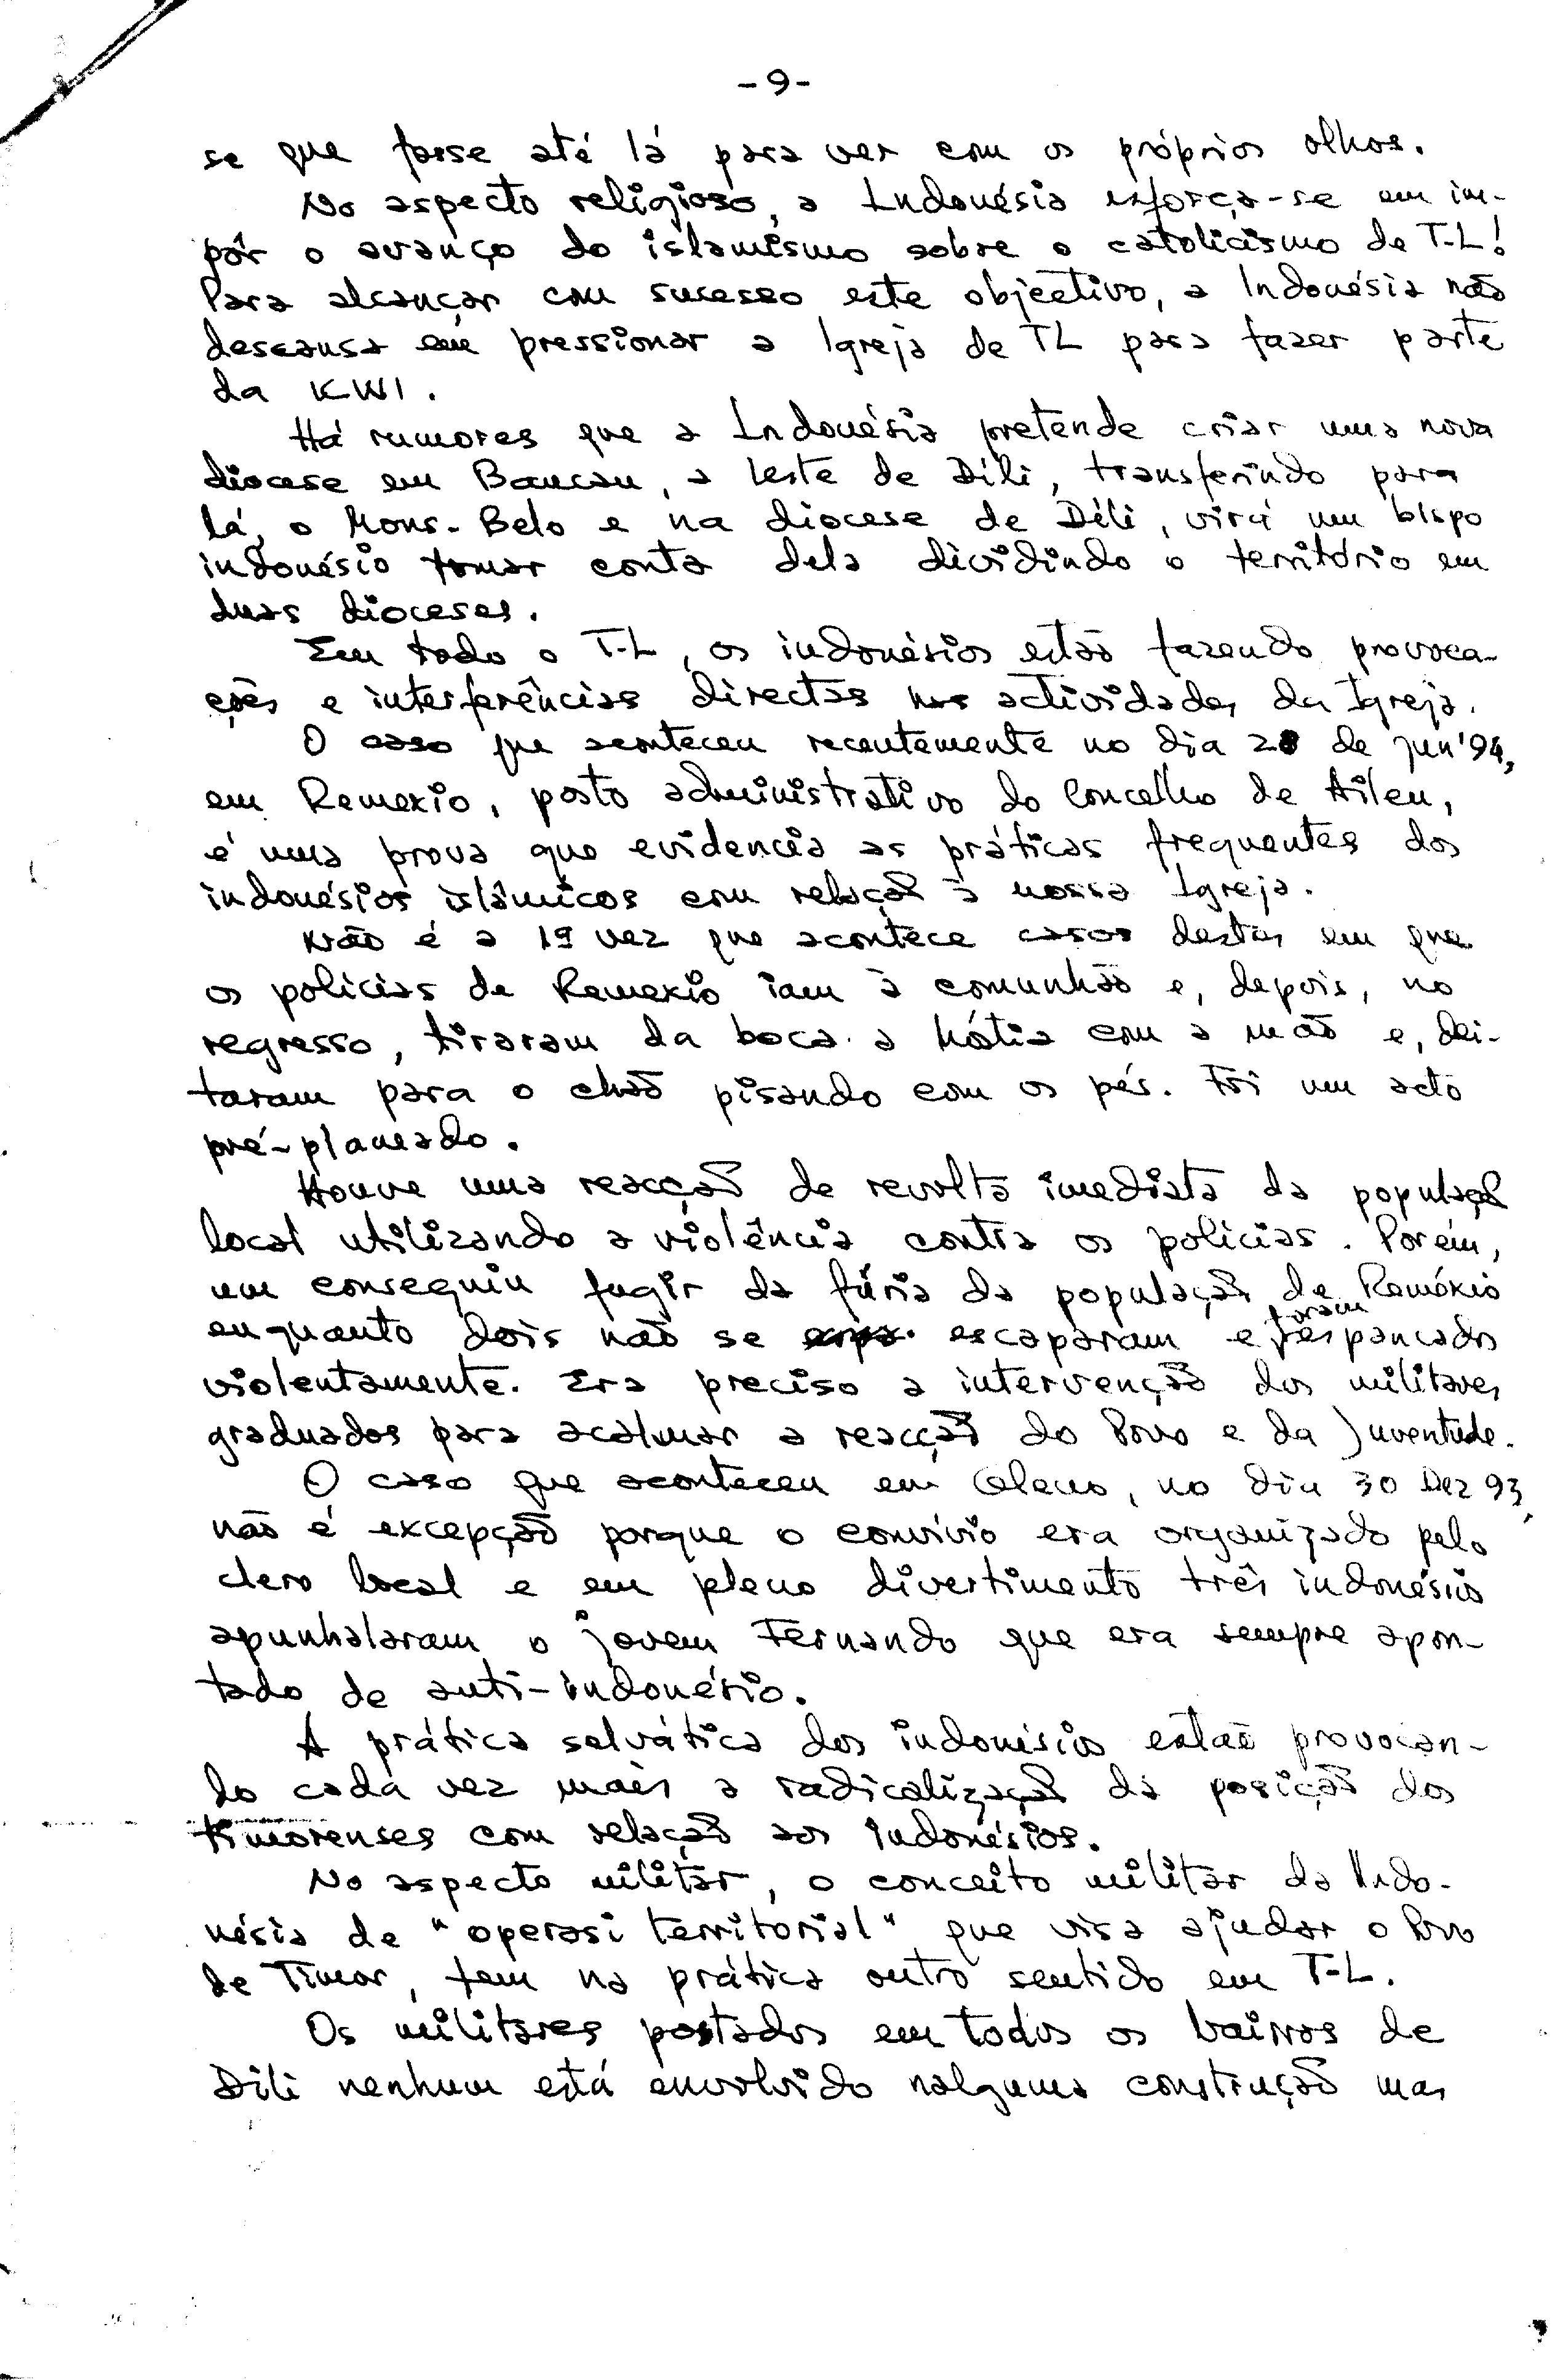 -9-
se que fosse até lá para ver com os próprios olhos.
No aspecto religioso, a Indonésia esforça-se em im-
pôr o avanço do islamismo sobre o catolicismo de T-L!
Para alcançar com sucesso este objectivo, a Indonésia não
descansa em pressionar a Igreja de TL para fazer parte
da KWI.
Há rumores que a Indonésia pretende criar uma nova
diocese em Baucau, a leste de Díli, transferindo para
lá, o Mons. Belo e na diocese de Díli, virá um bispo
indonésio tomar conta dela dividindo o território em
duas dioceses.
Em todo o T-L, os indonésios estão fazendo provoca-
ções e interferências directas nas actividades da Igreja.
O caso que aconteceu recentemente no dia 28 de jun'94,
em Remexio, posto administrativo do Concelho de Aileu,
é uma prova que evidencia as práticas frequentes dos
indonésios islâmicos com relação à nossa Igreja.
Não é a 1ª vez que acontece casos destes em que
os policias de Remexio iam à comunhão e, depois, no
regresso, tiraram da boca a hóstia com a mão e, dei-
taram para o chão pisando com os pés. Foi um acto
pré-planeado.
Houve uma reacção de revolta imediata da população
local utilizando a violência contra os policias. Porém,
um conseguiu fugir da fúria da população de Reméxio
enquanto dois não se escaparam e foram espancados
violentamente. Era preciso a intervenção dos militares
graduados para acalmar a reacção do Povo e da Juventude.
O caso que aconteceu em, no dia 30 Dez 93,
não é excepção porque o convívio era organizado pelo
clero local e em pleno divertimento três indonésios
apunhalaram o jovem Fernando que era sempre apon-
tado de anti-indonésio.
A prática selvática dos indonésios estão provocan-
do cada vez mais a radicalização da posição dos
timorenses com relação aos indonésios.
No aspecto militar, o conceito militar da Indo-
nésia de "operasi territorial" que visa ajudar o Povo
de Timor, tem na prática outro sentido em T-L.
Os militares postados em todos os bairros de
Dili nenhum está envolvido nalguma construção mas